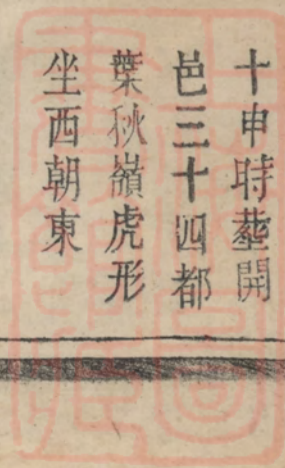 十申時塟開
邑三十四都
葉秋嶺虎形
坐西朝東